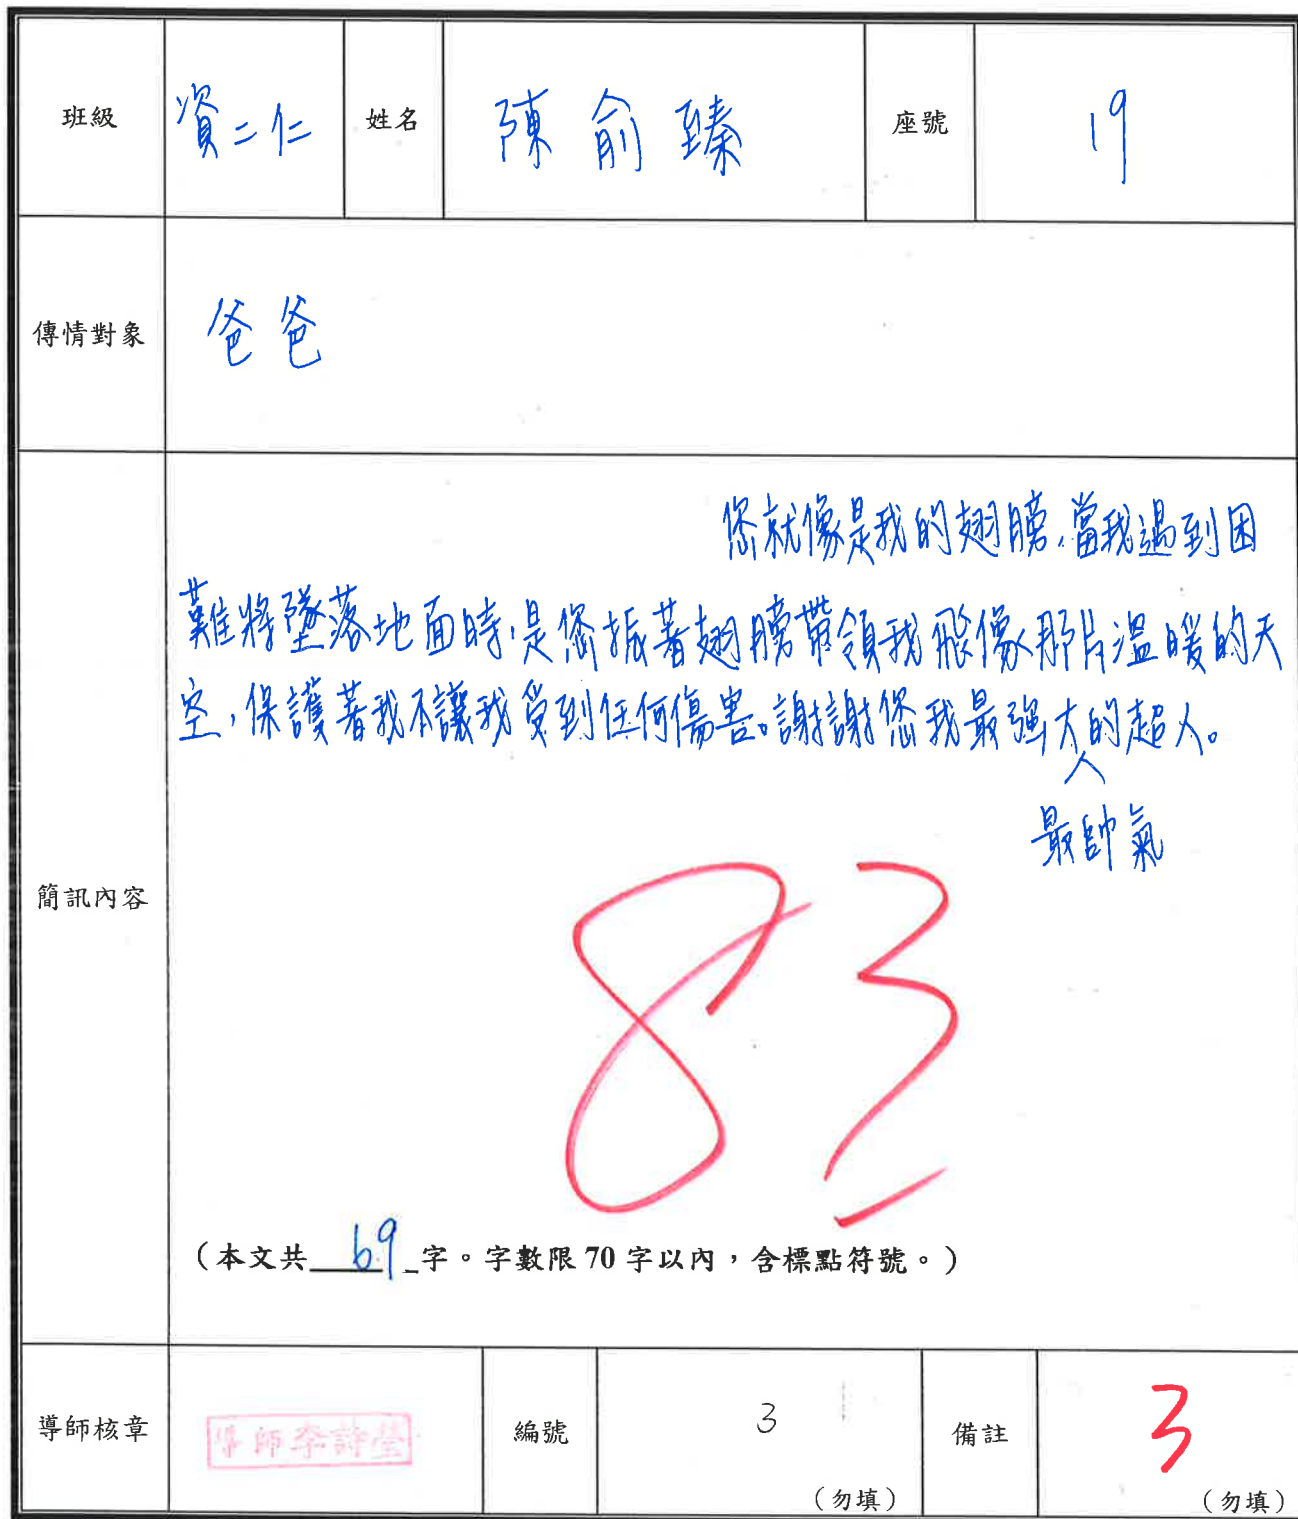 班級 資二仁 姓名 陳俞臻 座號 19
傳情對象 爸爸
您就像是我的翅膀,當我遇到困
難將墜落地面時,是您振著翅膀帶領我飛像那片溫暖的天
空,保護著我不讓我受到任何傷害。謝謝您我最強大的超人。
最帥氣
簡訊內容
83
(本文共 69 字。字數限 70 字以內,含標點符號。)
導師核章 導師李詩瑩 編號 3 (勿填) 備註 3 (勿填)